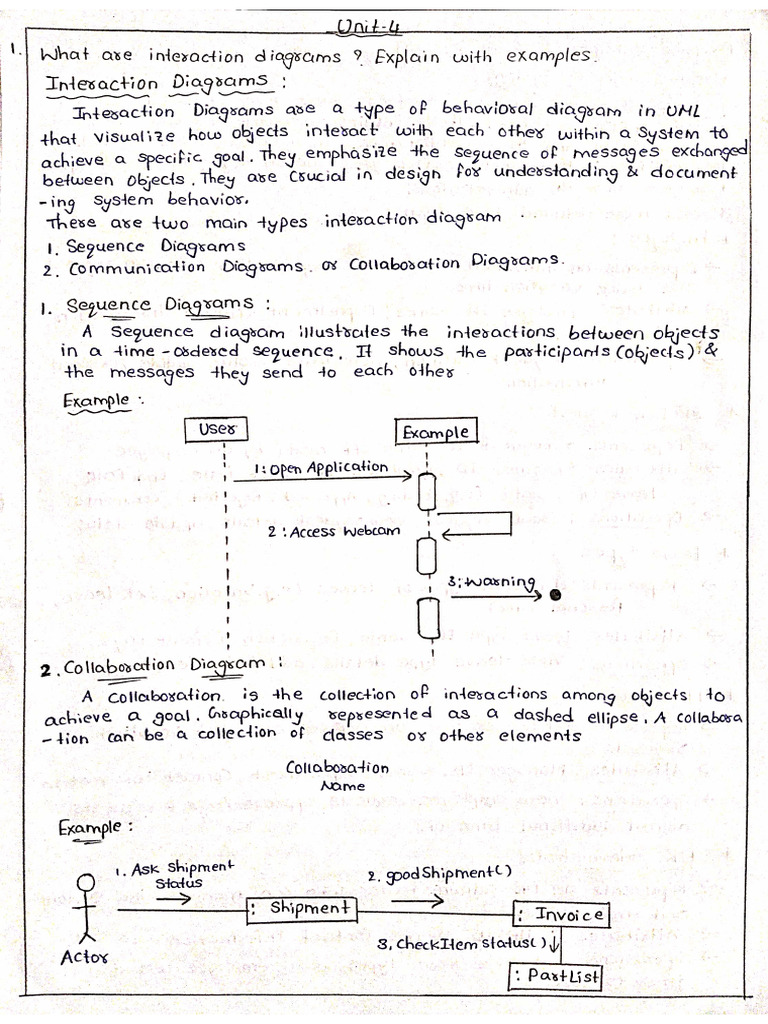 Unit-4
1. What are interaction diagrams ? Explain with examples.
Interaction Diagrams :
Interaction Diagrams are a type of behavioral diagram in UML
that visualize how objects interact with each other within a System to
achieve a specific goal. They emphasize the sequence of messages exchanged
between objects. They are crucial in design for understanding & document
-ing system behavior.
There are two main types interaction diagram .
1. Sequence Diagrams
2. Communication Diagrams or Collaboration Diagrams.
1. Sequence Diagrams :
A Sequence diagram illustrates the interactions between objects
in a time-ordered sequence. It shows the participants (objects) &
the messages they send to each other
Example :
User
Example
1: Open Application
2 : Access Webcam
3: Warning
2. Collaboration Diagram :
A Collaboration is the collection of interactions among objects to
achieve a goal. Graphically represented as a dashed ellipse. A collabora
-tion can be a collection of classes or other elements
Collaboration
Name
Example :
1. Ask Shipment
Status
2. goodShipment()
: Shipment
: Invoice
3, CheckItem status()
Actor
: PartList